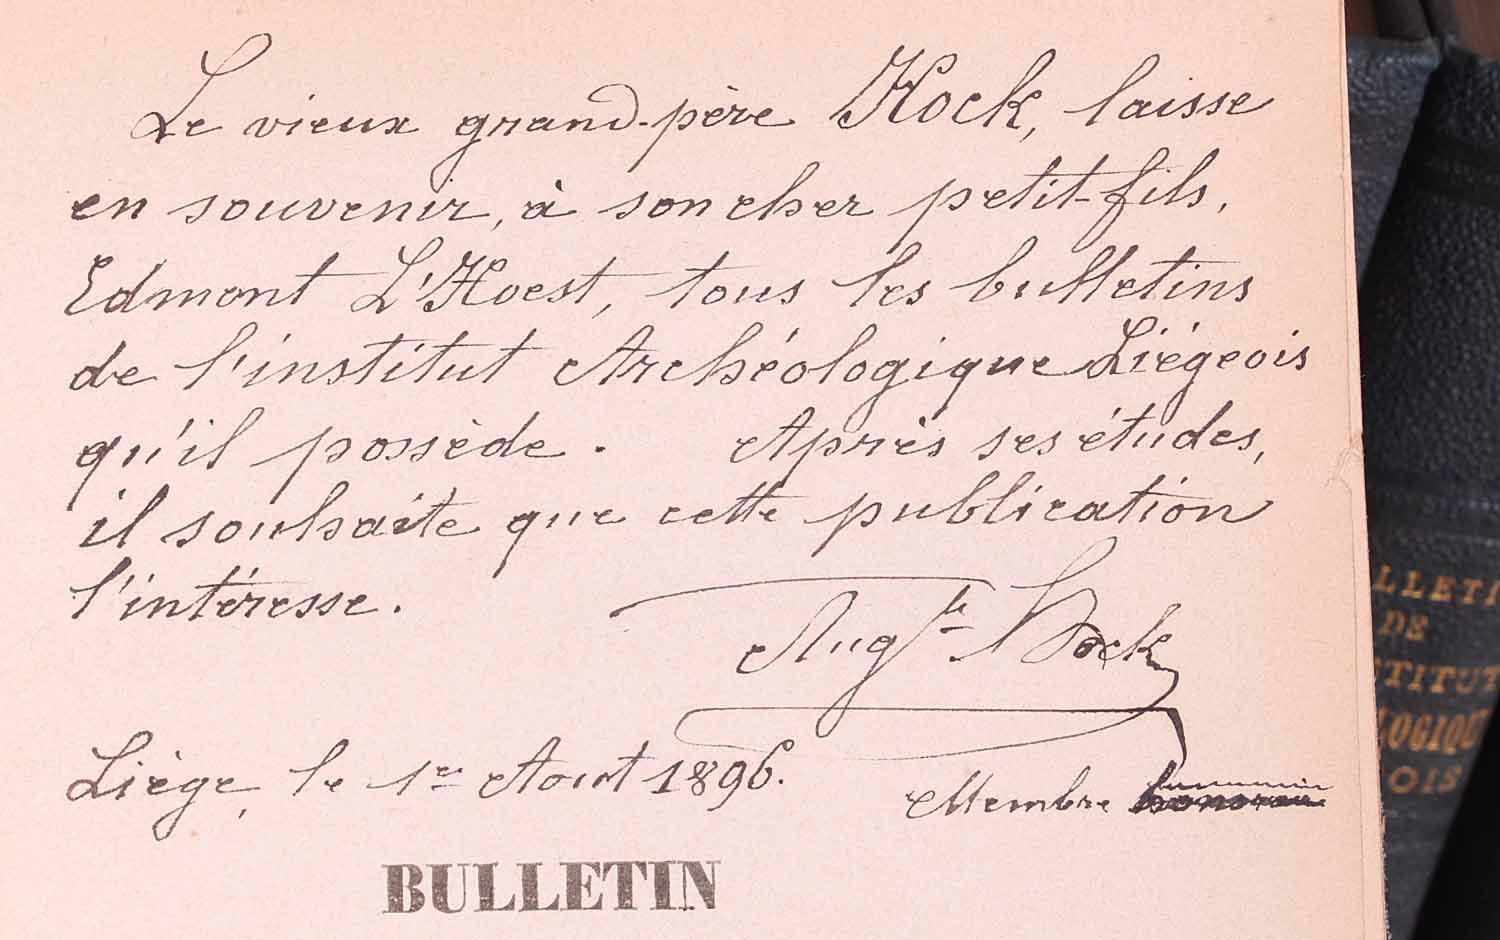 Le vieux grand-père Hock, laisse
en souvenir, à son cher petit-fils,
Edmont L'Hoest, tous les bulletins
de l'institut Archéologique Liégeois
qu'il possède. Après ses études,
il souhaite que cette publication
l'intéresse.
Augte Hock
Liège, le 1er Aout 1896.
Membre
BULLETIN
LLETI
DE
TITUT
LOGIQU
OIS